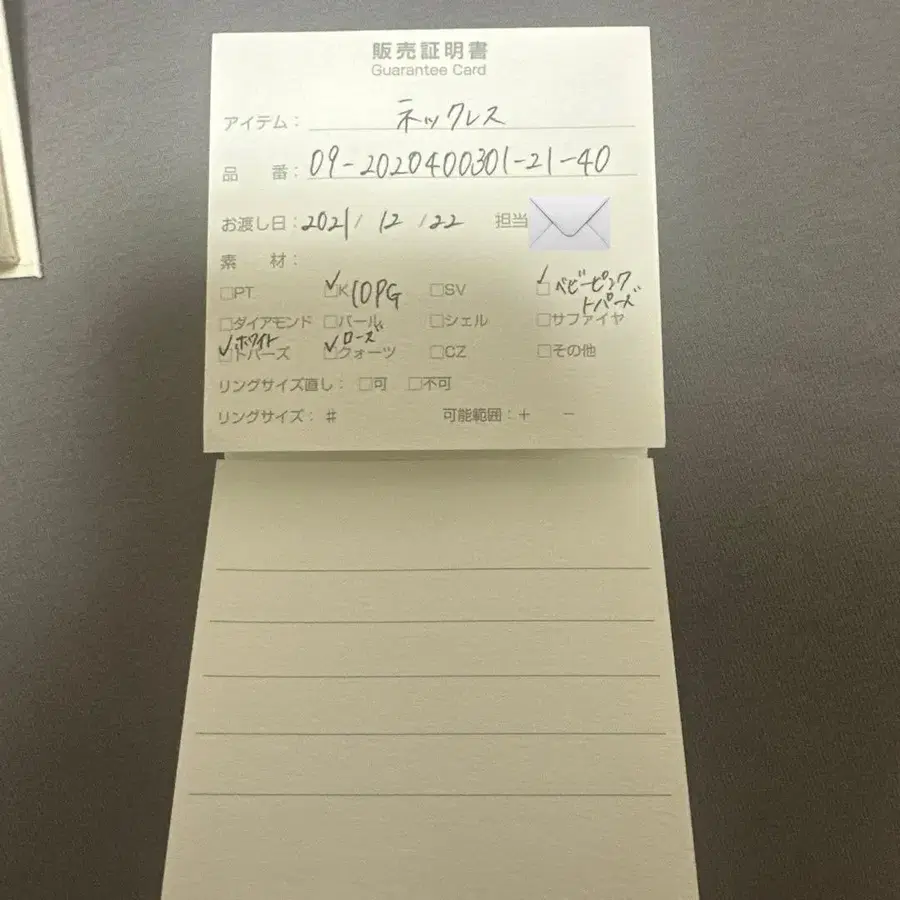 販売証明書
Guarantee Card
アイテム： ネックレス
品　番： 09-2020400301-21-40
お渡し日：2021/ 12 /22 担当
素　材：
□PT ✓□K10PG □SV ✓□ベビーピンクトパーズ
□ダイアモンド □パール □シェル □サファイヤ
✓□ホワイトトパーズ ✓□ローズクォーツ □CZ □その他
リングサイズ直し： □可 □不可
リングサイズ： # 可能範囲：＋ －